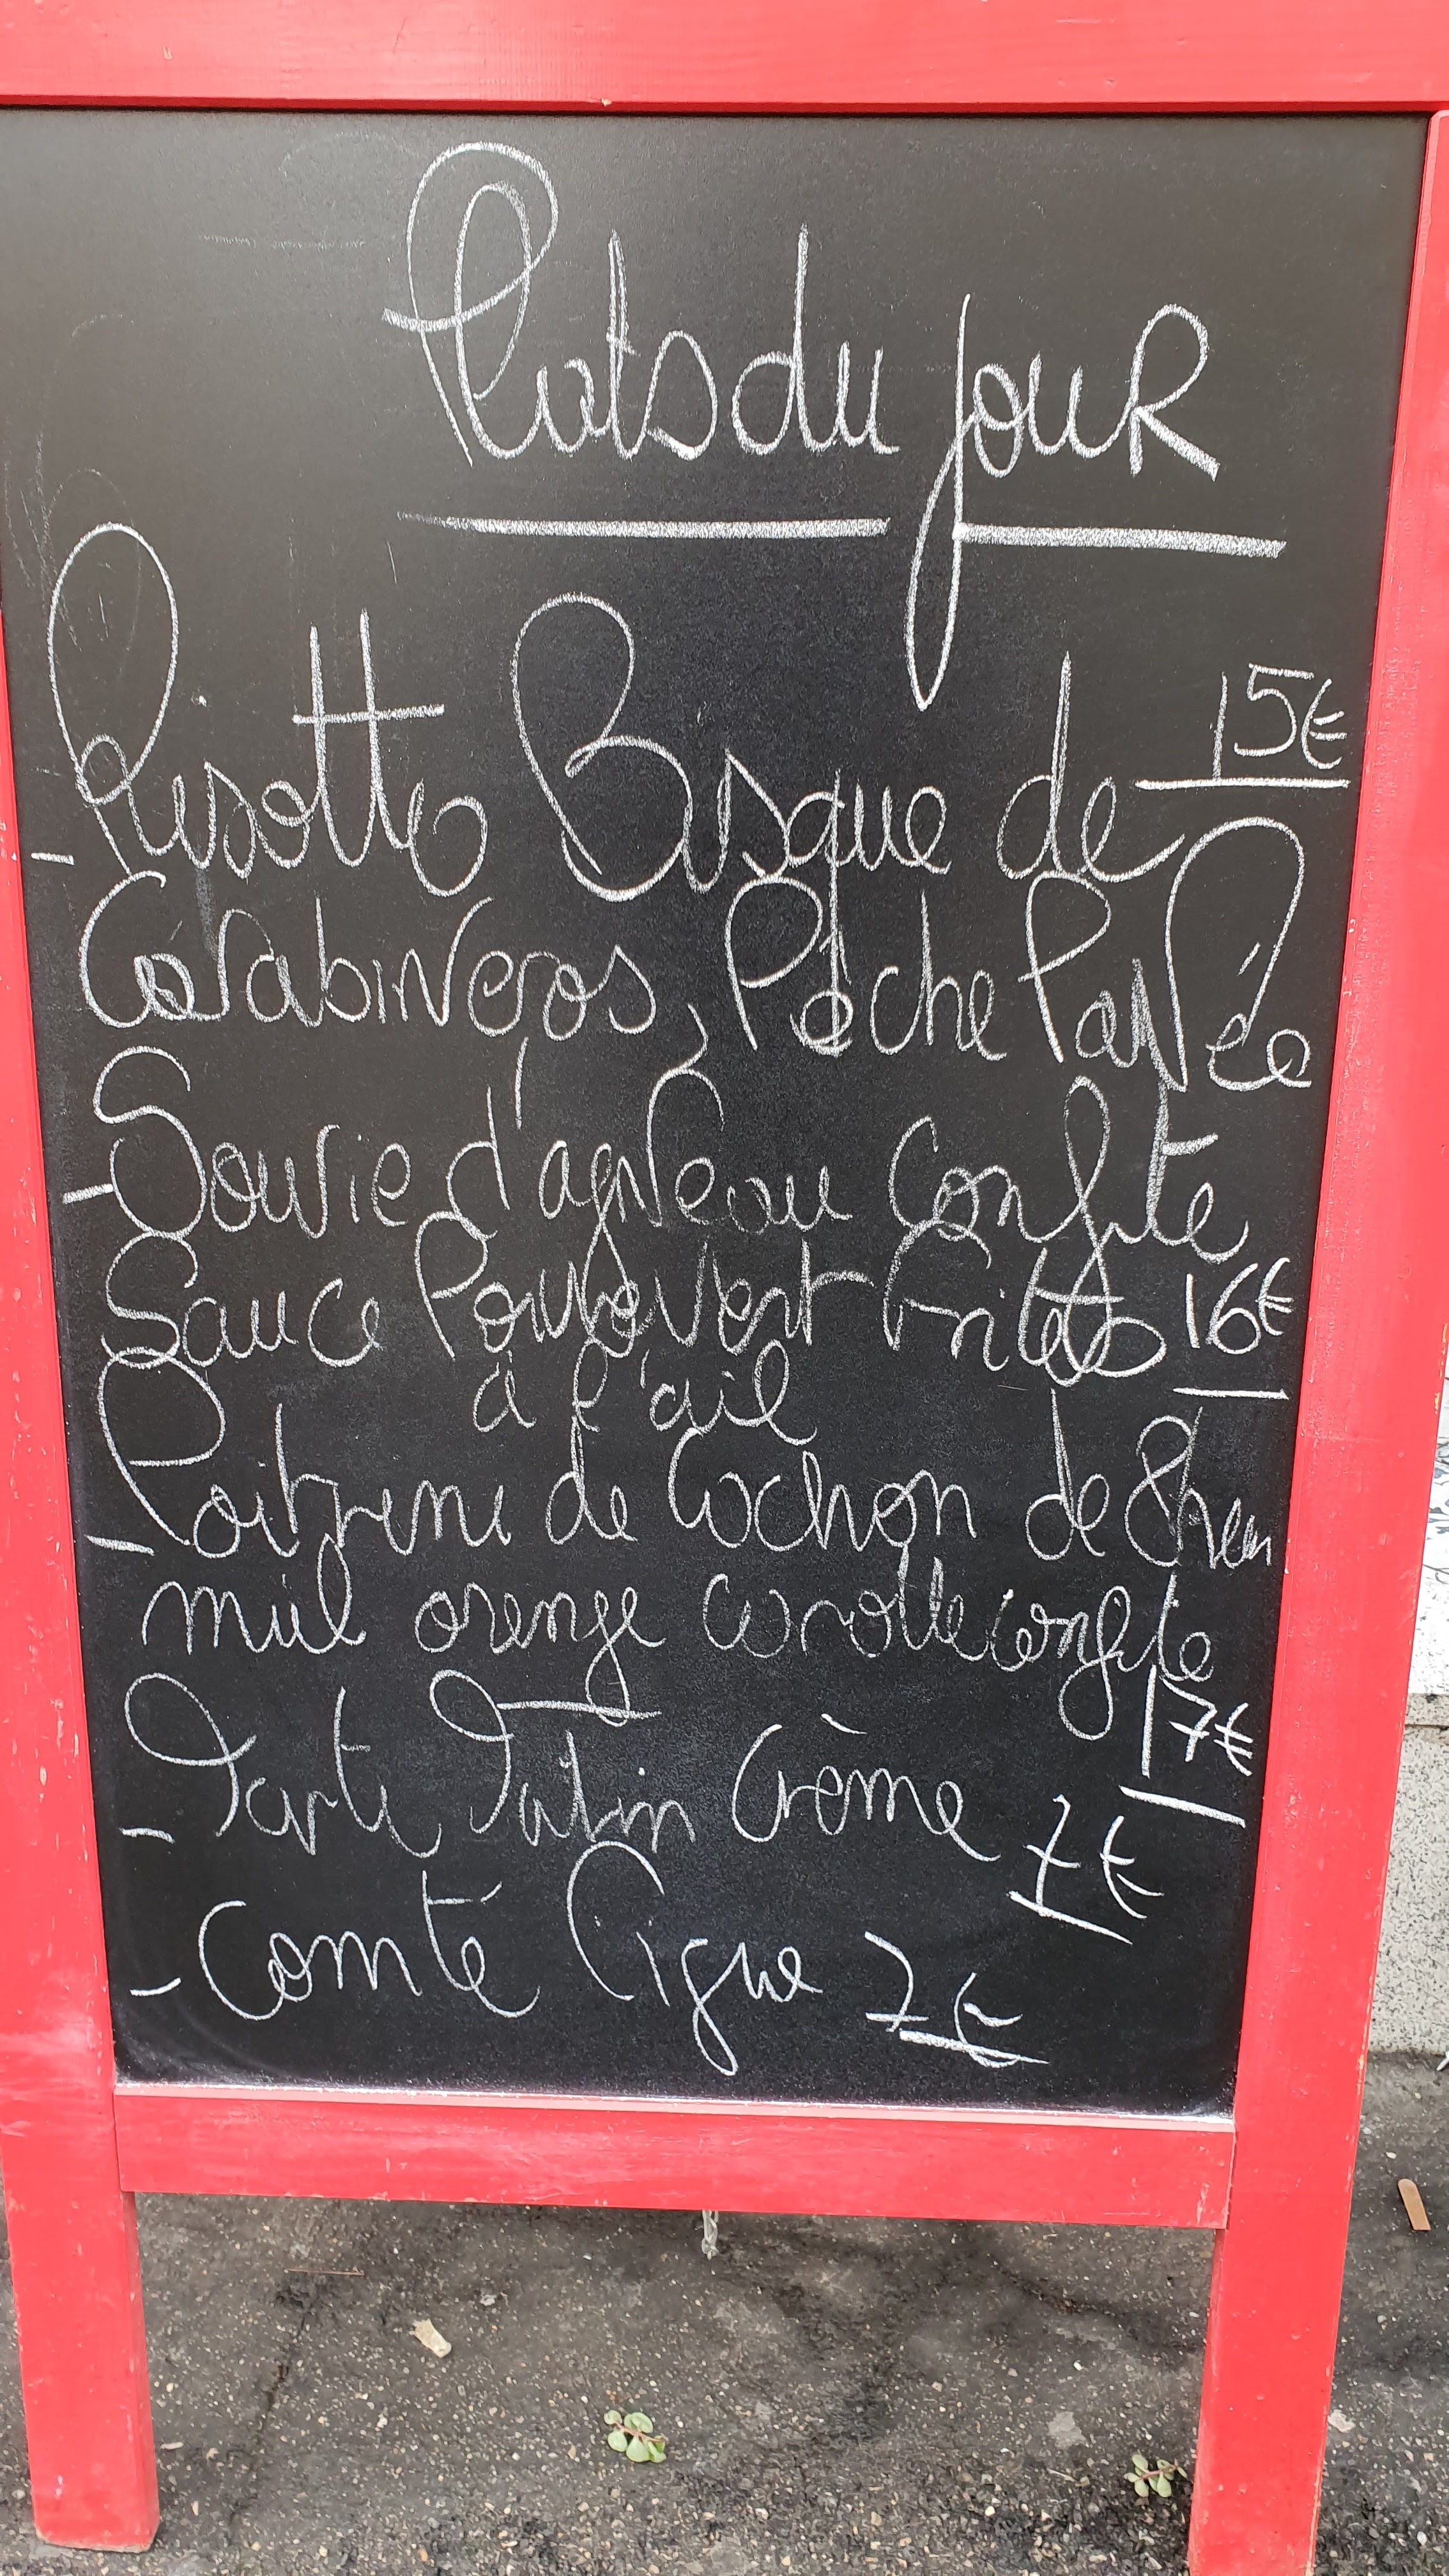 Plats du jouR
Risotto Bisque de 15€
CaRabiNeros, Pêche PaNée
- Sourie d'agNeau Confite
Sauce PoivreVert Frites 16€
à l'ail
- Poitrine de Cochon de 8h en
miel orenge carotte confite
17€
- Tarte Tatin Crème 7€
- Comté Figue 7€